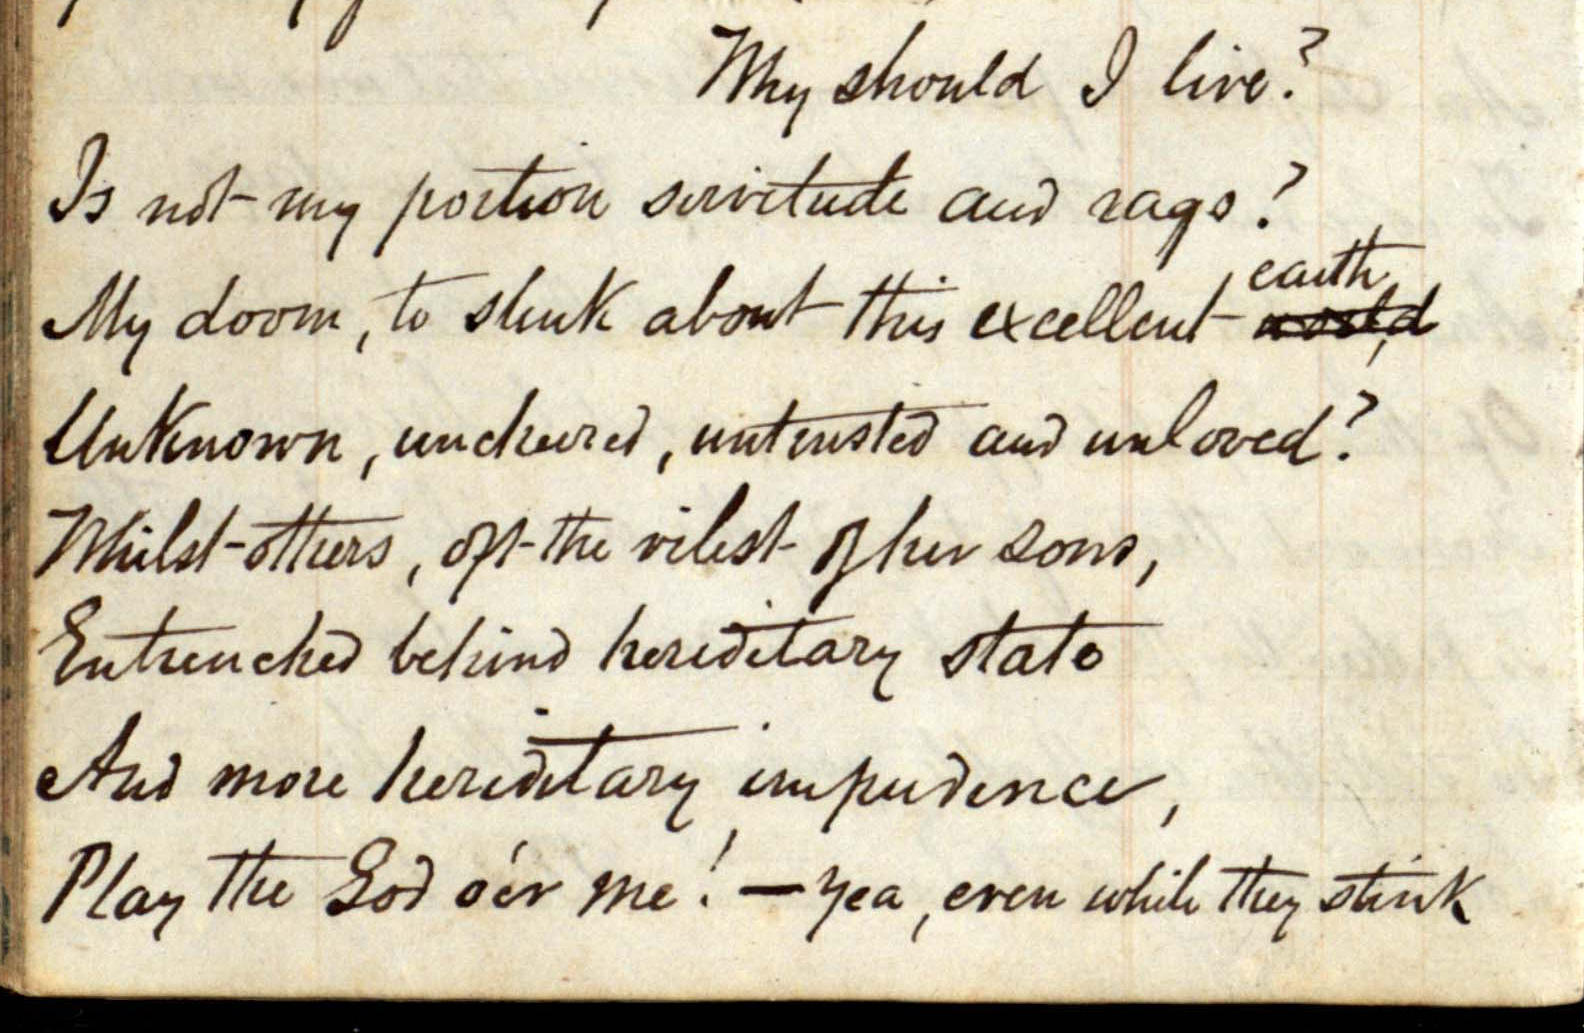 Why should I live?
Is not my portion servitude and rags?
My doom, to slink about this excellent earth world,
Unknown, uncheered, untrusted and unloved?
Whilst others, oft the vilest of her sons,
Entrenched behind hereditary state
And more hereditary impudence,
Play the God o'er me! — Yea, even while they stink